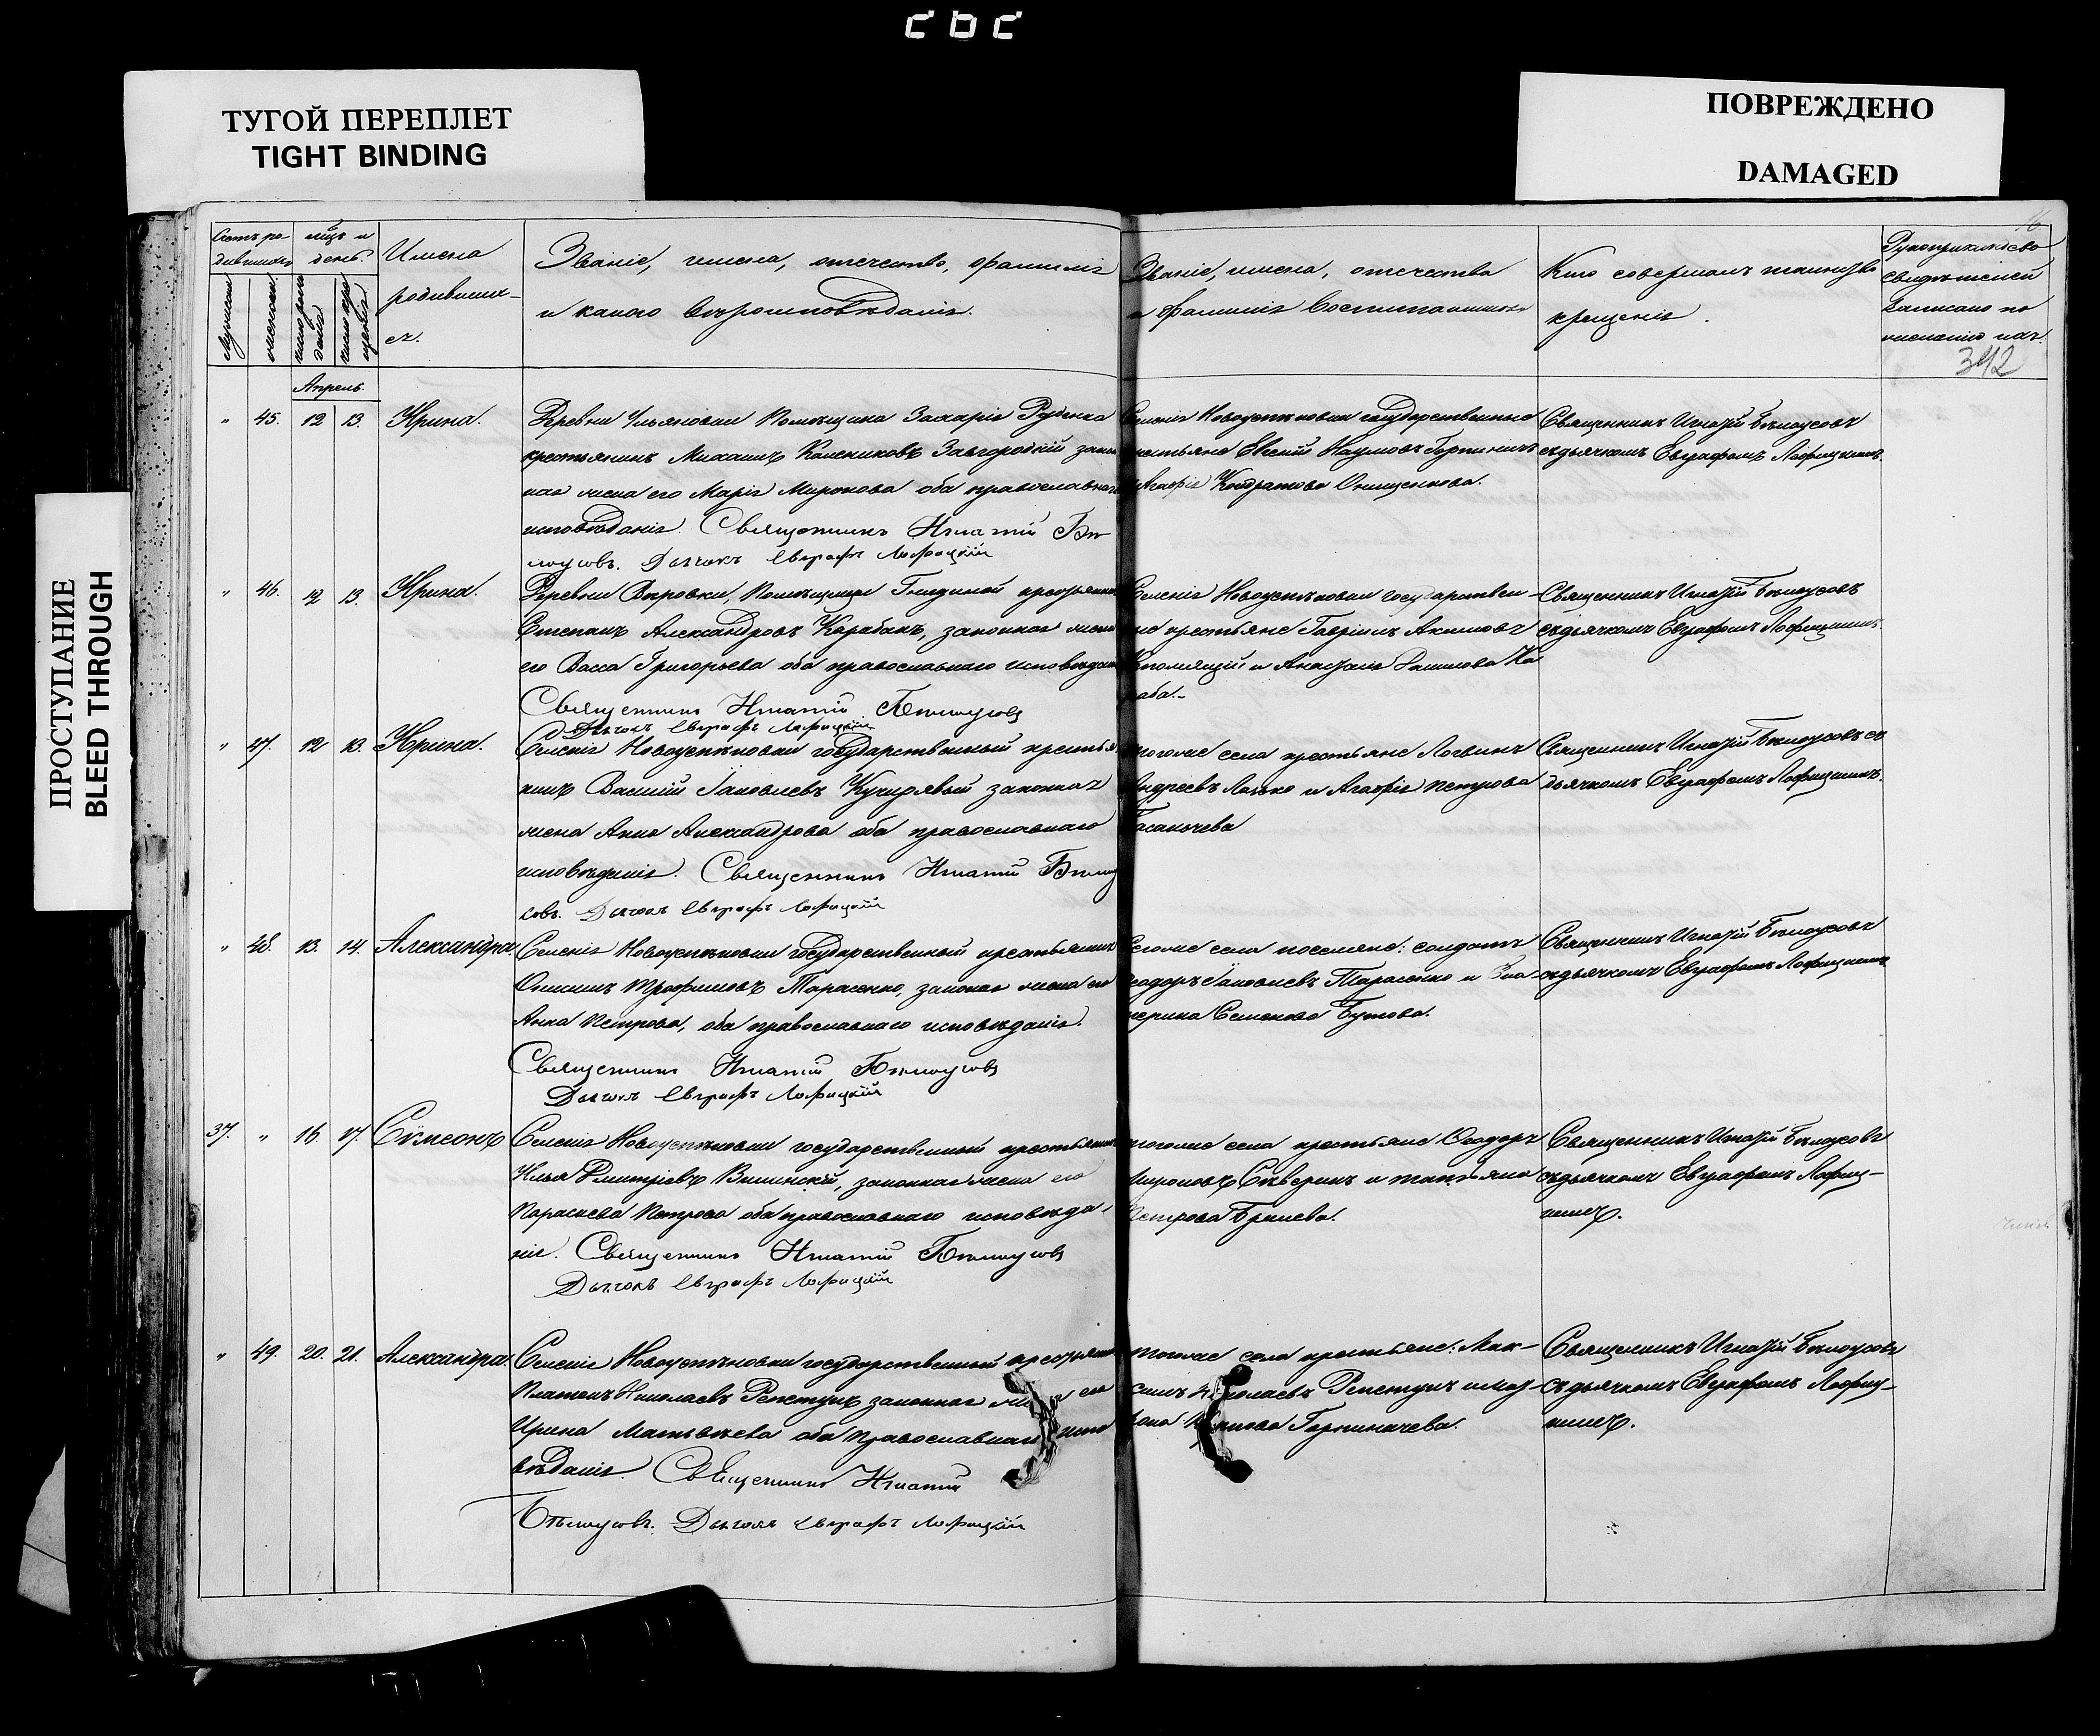 сьс
ТУГОЙ ПЕРЕПЛЕТ
TIGHT BINDING
ПОВРЕЖДЕНО
DAMAGED
ПРОСТУПАНИЕ
BLEED THROUGH
Счетъ родившихся
мѣц. и день
Имена родившихся.
Званіе, имена, отечество, фамилія
и какого вѣроисповѣданія.
Званіе, имена, отечество
и фамилія воспріемниковъ
Кто совершалъ таинство
крещенія.
Рукоприкладство
свидѣтелей
записано по
желанію
342
Мужеска
женска
число рожденія
число крещенія
Апрель.
" 45. 12 13. Ирина.
Деревни Ульяновки Помѣщика Захарія Руденка
крестьянинъ Михаилъ Завгородній закон
ная жена его Марія Миронова оба православнаго
исповѣданія. Священникъ Игнатій Бѣ
лоусовъ. Дьячокъ Евграфъ Лофицкій
Селенія Новоуспѣновки государственные
крестьяне Евсеній Наумовъ
и Агафія Кондратова Онищенкова.
Священникъ Игнатій Бѣлоусовъ
съ дьячкомъ Евграфомъ Лофицкимъ.
" 46. 12 13. Ирина.
Деревни Вѣровки, Помѣщицы Гнединой крестьянинъ
Степанъ Александровъ Карабанъ, законная жена
его Васса Григорьева оба православнаго исповѣданія
Священникъ Игнатій Бѣлоусовъ
Дьячокъ Евграфъ Лофицкій
Селенія Новоуспѣновки государствен-
ные крестьяне Гавріилъ Акимовъ
и Анастасія
Священникъ Игнатій Бѣлоусовъ
съ дьячкомъ Евграфомъ Лофицкимъ.
" 47. 12 13. Ирина.
Селенія Новоуспѣновки государственный крестья
нинъ Василій Іаковлевъ Кучерявый законная
жена Анна Александрова оба православнаго
исповѣданія. Священникъ Игнатій Бѣлоу
совъ. Дьячокъ Евграфъ Лофицкій
того же села крестьяне Логвинъ
Андреевъ Лалко и Агафія Петрова
Священникъ Игнатій Бѣлоусовъ съ
дьячкомъ Евграфомъ Лофицкимъ.
" 48. 13. 14. Александра.
Селенія Новоуспѣновки государственный крестьянинъ
Онисимъ Трофимовъ Тарасенко, законная жена его
Анна Петрова, оба православнаго исповѣданія.
Священникъ Игнатій Бѣлоусовъ
Дьячокъ Евграфъ Лофицкій
того же села поселяне: солдатъ
Ѳеодоръ Іаковлевъ Тарасенко и Ека
терина Семенова Бутова.
Священникъ Игнатій Бѣлоусовъ
съ дьячкомъ Евграфомъ Лофицкимъ
37. " 16. 17. Сѵмеонъ
Селенія Новоуспѣновки государственный крестьянинъ
Илья Дмитріевъ Вишинскій, законная жена его
Параскева Петрова оба православнаго исповѣда
нія. Священникъ Игнатій Бѣлоусовъ
Дьячокъ Евграфъ Лофицкій
того же села крестьяне Ѳеодоръ
Мироновъ Северинъ и Татьяна
Петрова Гришева.
Священникъ Игнатій Бѣлоусовъ
съ дьячкомъ Евграфомъ Лофиц-
кимъ.
" 49. 20. 21. Александра.
Селенія Новоуспѣновки государственный крестьянинъ
Платонъ Николаевъ Репетунъ законная жена его
Ирина Матвѣева оба православнаго испо
вѣданія. Священникъ Игнатій
Бѣлоусовъ. Дьячокъ Евграфъ Лофицкій
того же села крестьяне: Мак-
симъ Николаевъ Репетунъ и Мат-
рона
Священникъ Игнатій Бѣлоусовъ
съ дьячкомъ Евграфомъ Лофиц-
кимъ.